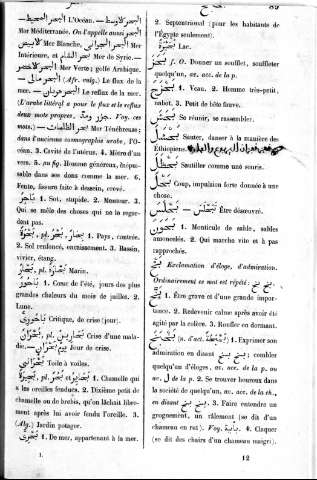 البحر الاوسط — L'Océan. البحر المحيط
Mer Méditerranée. On l'appelle aussi البحر
الابيض Mer Blanche, البحر الجوانى Mer
Intérieure, et بحر الشام Mer de Syrie. —
البحر الاخضر Mer Verte : golfe Arabique.
— بحر مالى (Afr. vulg.) Le flux de la mer.
— بحر هربان Le reflux de la mer.
(L'arabe littéral a pour le flux et le reflux
deux mots propres, جزر et مد. Voy. ces
mots.) — بحر الظلمات Mer Ténébreuse :
dans l'ancienne cosmographie arabe, l'O-
céan. 3. Cavité de l'utérus. 4. Mètre d'un
vers. 5. au fig. Homme généreux, inépui-
sable dans ses dons comme la mer. 6.
Fente, fissure faite à dessein, crevé.
باحر 1. Sot, stupide. 2. Menteur. 3.
Qui se mêle des choses qui ne le regar-
dent pas.
بحرة, pl. بحار 1. Pays, contrée.
2. Sol renfoncé, encaissement. 3. Bassin,
vivier, étang.
بحار, pl. بحارة Marin.
باحور 1. Cœur de l'été, jours des plus
grandes chaleurs du mois de juillet. 2.
Lune.
باحورى Critique, de crise (jour).
بحران, pl. بحارين Crise d'une mala-
die. — يوم بحران Jour de crise.
بحرانى Toile à voiles.
بحيرة, pl. بحائر 1. Chamelle qui
a les oreilles fendues. 2. Dixième petit de
chamelle ou de brebis, qu'on lâchait libre-
ment après lui avoir fendu l'oreille. 3.
(Alg.) Jardin potager.
بحرى 1. De mer, appartenant à la mer.
1.
89
2. Septentrional : pour les habitants de
l'Égypte seulement).
بحرة Lac.
f. O. Donner un soufflet, souffleter
quelqu'un, av. acc. de la p.
بحزج 1. Veau. 2. Homme très-petit,
nabot. 3. Petit de bête fauve.
Se réunir, se rassembler.
بحشل Sauter, danser à la manière des
Ethiopiens.
بحظل Sautiller comme une souris.
Coup, impulsion forte donnée à une
chose.
تبحلس — بحلس Être désœuvré.
بحون 1. Monticule de sable, sables
amoncelés. 2. Qui marche vite et à pas
rapprochés.
بخ Exclamation d'éloge, d'admiration.
Ordinairement ce mot est répété : بخ بخ.
بخ 1. Être grave et d'une grande impor-
tance. 2. Redevenir calme après avoir été
agité par la colère. 3. Ronfler en dormant.
بخبخ (n. d'act. بخبخة) 1. Exprimer son
admiration en disant بخ بخ, combler
quelqu'un d'éloges, av. acc. de la p. ou
av. ل de la p. 2. Se trouver heureux dans
la société de quelqu'un, av. acc. de la ch.,
en disant بخ بخ. 3. Faire entendre un
grognement, un râlement (se dit d'un
chameau en rut). Voy. بأبة. 4. Claquer
(se dit des chairs d'un chameau maigri).
12